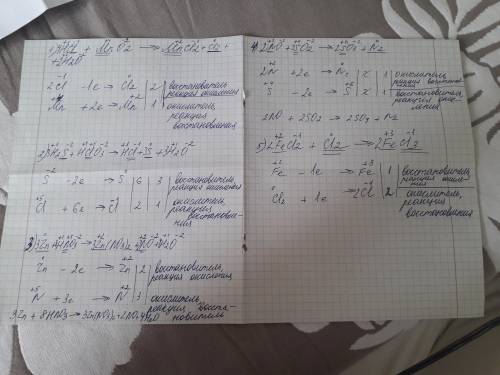 1) 4HCl + MnO2 → MnCl2 + Cl2 +
+2H2O
2Cl -1e → Cl2 | 2 | восстановитель
реакция окисления
Mn +2e → Mn | 1 | окислитель,
реакция
восстановления
2) 3H2S + HClO3 → HCl + 3S + 3H2O
S -2e → S | 6 | 3 | восстановитель,
реакция окисления
Cl + 6e → Cl | 2 | 1 | окислитель,
реакция
восстановле-
ния
3) 3Zn + 8HNO3 → 3Zn(NO3)2 + 2NO + 4H2O
Zn -2e → Zn | 2 | восстановитель,
реакция окисления
N +3e → N | 3 | окислитель,
реакция восста-
новитель
3Zn + 8HNO3 → 3Zn(NO3)2 + 2NO + 4H2O
4) 2NO + 2SO2 → 2SO3 + N2
2N +2e → N2 | 1 | окислитель,
реакция восстанов-
ления
S -2e → S | 1 | восстановитель,
реакция окис-
ления
2NO + 2SO2 → 2SO3 + N2
5) 2FeCl2 + Cl2 → 2FeCl3
Fe -1e → Fe | 1 | восстановитель,
реакция окисле-
ния
Cl2 + 1e → 2Cl | 2 | окислитель,
реакция
восстановления